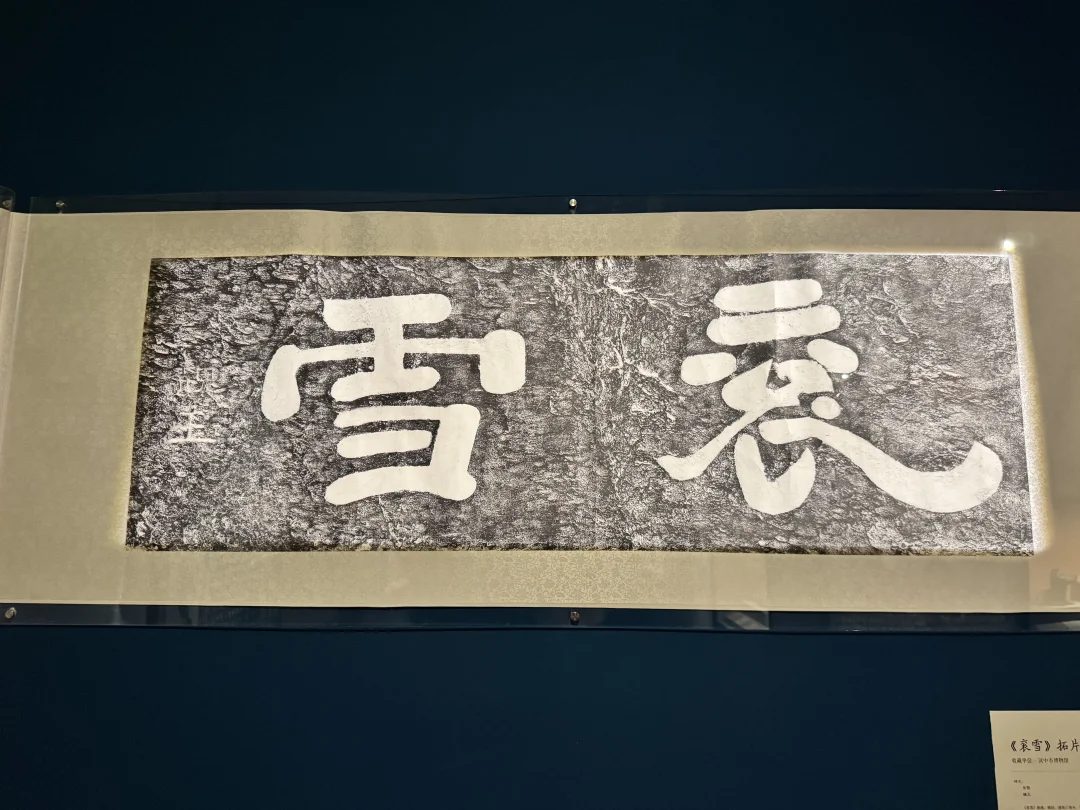 衮雪
魏王
《衮雪》拓片
收藏单位：汉中市博物馆